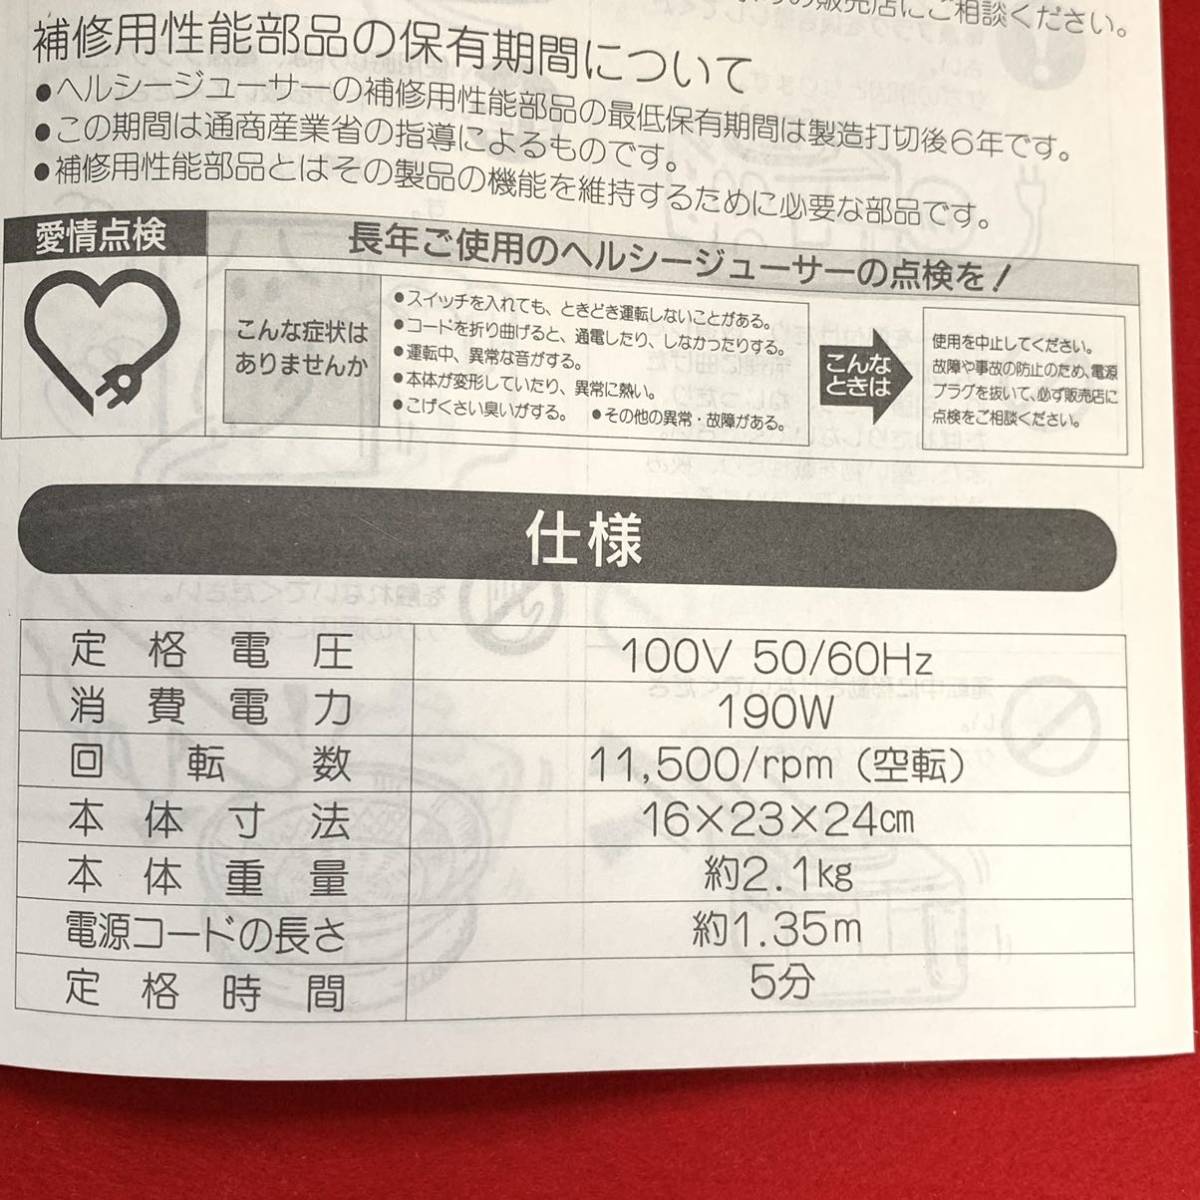 の販売店にご相談ください。
補修用性能部品の保有期間について
●ヘルシージューサーの補修用性能部品の最低保有期間は製造打切後6年です。
●この期間は通商産業省の指導によるものです。
●補修用性能部品とはその製品の機能を維持するために必要な部品です。
愛情点検
長年ご使用のヘルシージューサーの点検を!
こんな症状は
ありませんか
●スイッチを入れても、ときどき運転しないことがある。
●コードを折り曲げると、通電したり、しなかつたりする。
●運転中、異常な音がする。
●本体が変形していたり、異常に熱い。
●こげくさい臭いがする。 ●その他の異常・故障がある。
こんな
ときは
使用を中止してください。
故障や事故の防止のため、電源
プラグを抜いて、必ず販売店に
点検をご相談ください。
仕様
定格電圧 100V 50/60Hz
消費電力 190W
回転数 11,500/rpm(空転)
本体寸法 16×23×24cm
本体重量 約2.1kg
電源コードの長さ 約1.35m
定格時間 5分